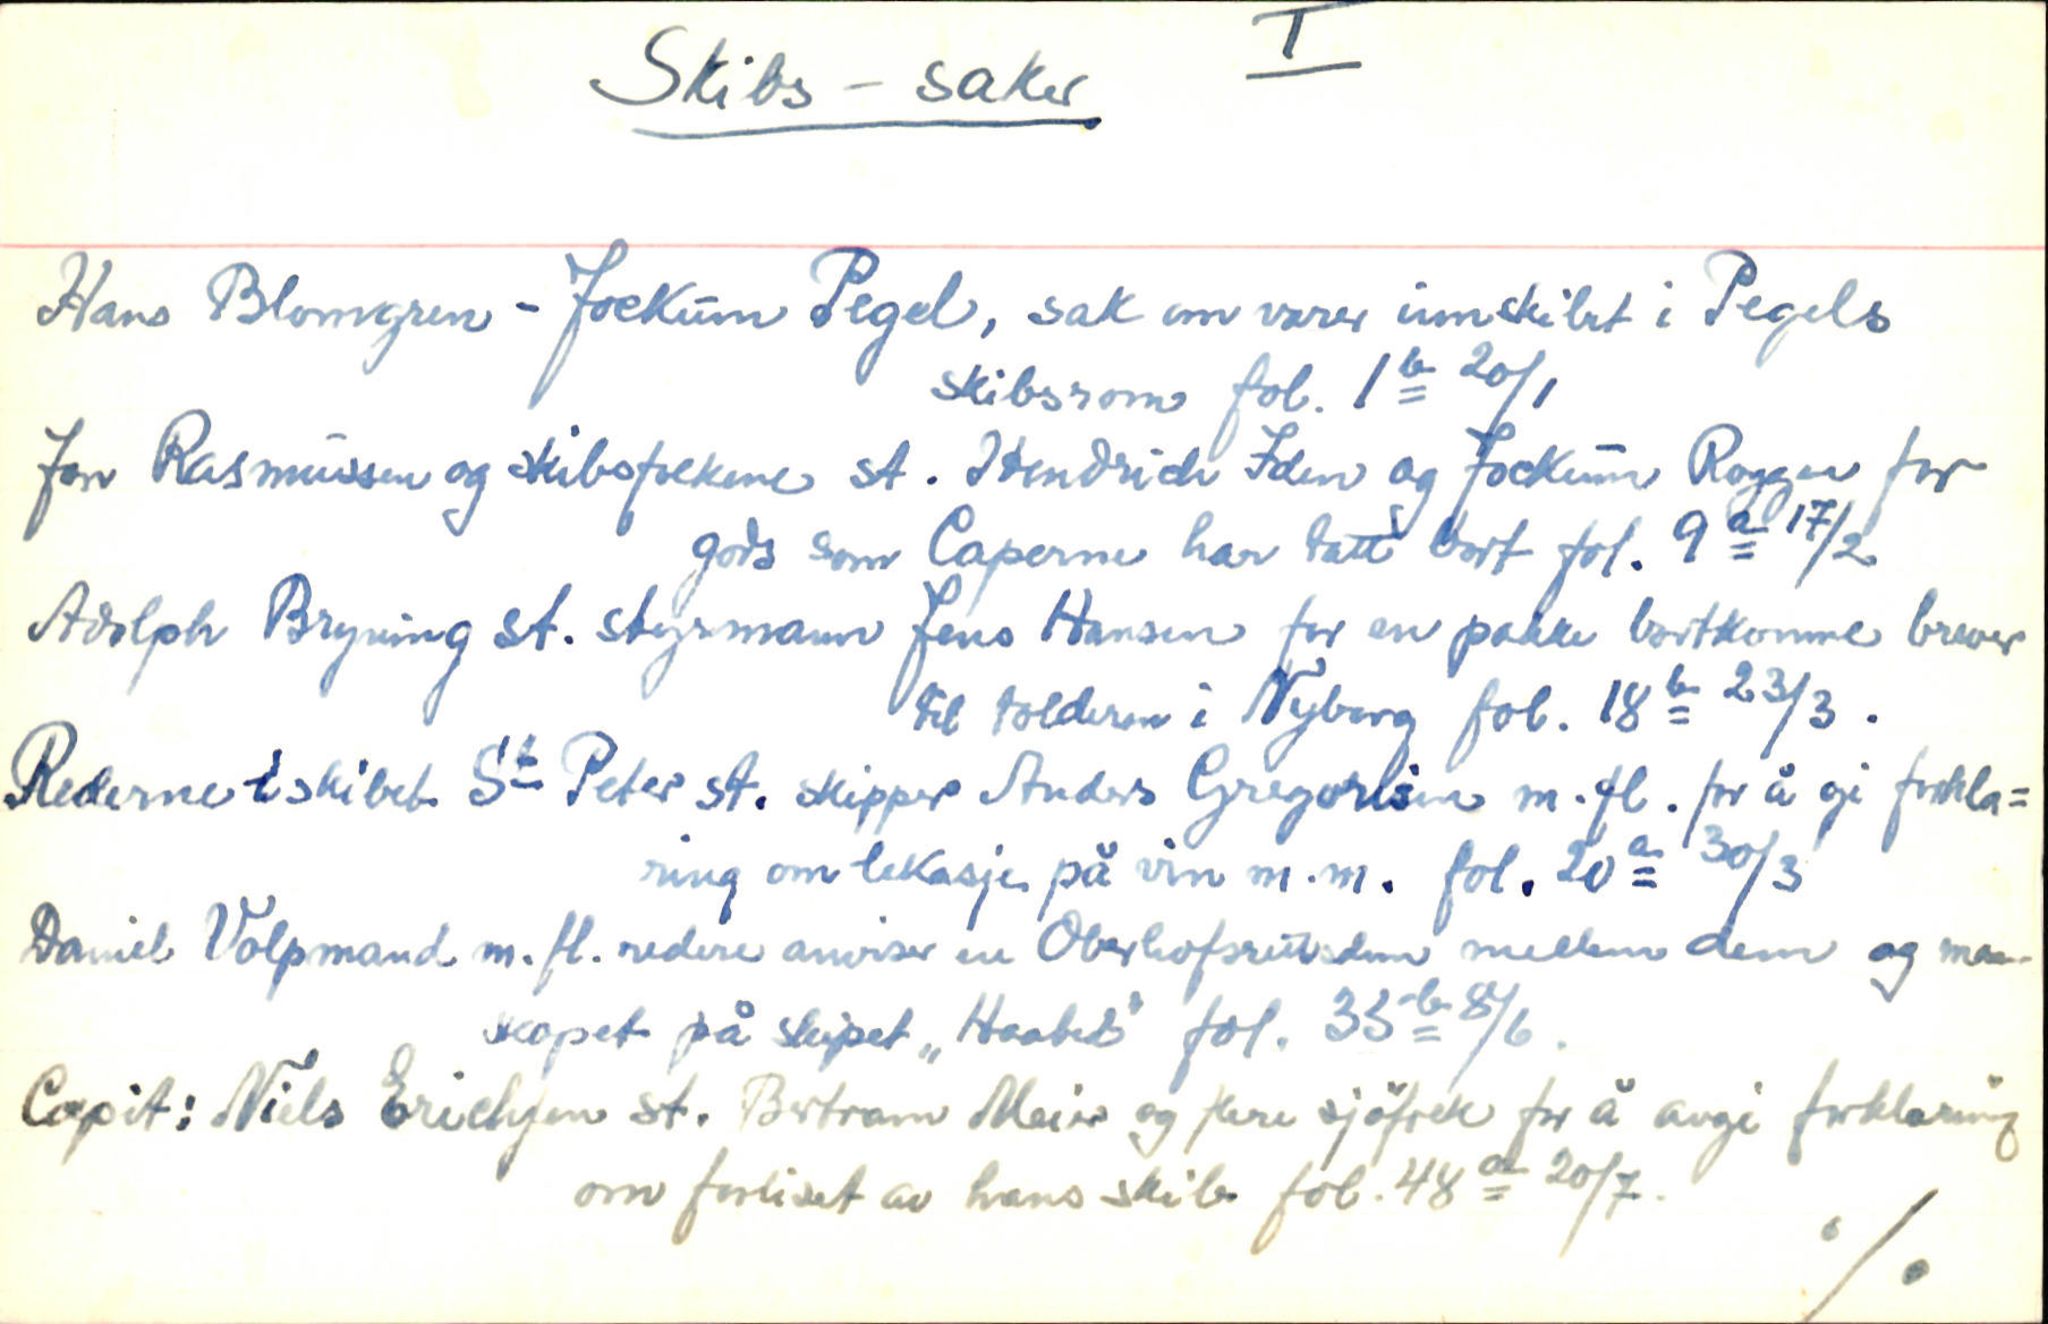 Skibs – saker I
Hans Blomgren – Jockum Pegel, sak om varer innskibet i Pegels
skibsrom fol. 1 b 20/1
Jon Rasmussen og skibsfolkene st. Hendrich Iden og Jockum Roggen for
gods som Caperne har tatt bort fol. 9 a 17/2
Adolph Bryning st. styrmann Jens Hansen for en pakke bortkomne brever
til tolderen i Nyborg fol. 18 b 23/3.
Rederne i skibet St Peter st. skipper Anders Gregorisen m.fl. for å gi forkla=
ring om lekasje på vin m.m. fol. 20 a 30/3
Daniel Volpmand m.fl. redere anviser en Oberhofsrets dom mellem dem og man-
skapet på skipet „Haabet" fol. 33 b 8/6.
Capit: Niels Erichsen st. Bertram Meier og flere sjöfolk for å avgi forklaring
om forliset av hans skib fol. 48 a 20/7.
./.